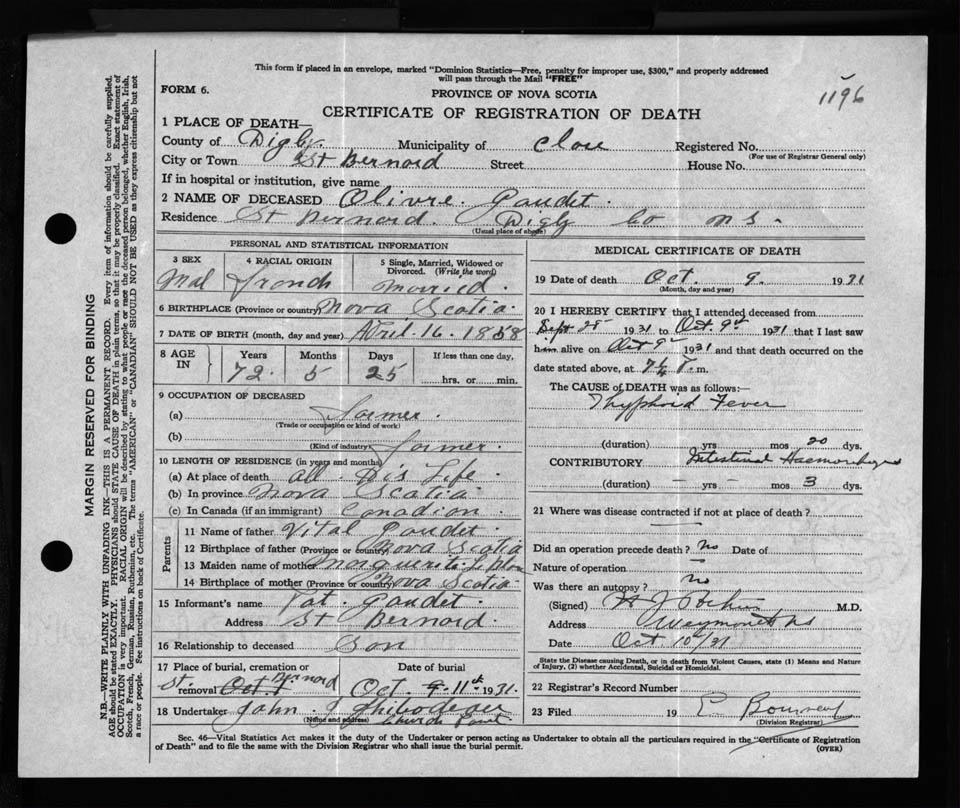 This form if placed in an envelope, marked "Dominion Statistics—Free, penalty for improper use, $300," and properly addressed
will pass through the Mail "FREE"
FORM 6.
PROVINCE OF NOVA SCOTIA
1196
CERTIFICATE OF REGISTRATION OF DEATH
1 PLACE OF DEATH—
County of Digby Municipality of Clare Registered No.
(For use of Registrar General only)
City or Town St Bernard Street House No.
If in hospital or institution, give name
2 NAME OF DECEASED Olivre Gaudet.
Residence St Bernard. Digby Co N S.
(Usual place of abode)
PERSONAL AND STATISTICAL INFORMATION
3 SEX 4 RACIAL ORIGIN 5 Single, Married, Widowed or Divorced. (Write the word)
Mal French Married.
6 BIRTHPLACE (Province or country) Nova Scotia.
7 DATE OF BIRTH (month, day and year) April 16. 1858
8 AGE IN Years Months Days If less than one day,
72. 5 25 hrs. or min.
9 OCCUPATION OF DECEASED
(a) farmer.
(Trade or occupation or kind of work)
(b) farmer.
(Kind of industry)
10 LENGTH OF RESIDENCE (in years and months)
(a) At place of death all His Life
(b) In province Nova Scotia
(c) In Canada (if an immigrant) Canadian.
Parents
11 Name of father Vital Gaudet.
12 Birthplace of father (Province or country) Nova Scotia
13 Maiden name of mother Marguerite
14 Birthplace of mother (Province or country) Nova Scotia
15 Informant's name Pat. Gaudet.
Address St Bernard.
16 Relationship to deceased Son
17 Place of burial, cremation or removal Date of burial
St. Bernard Oct. 9-11th 1931.
18 Undertaker John J Thibodeau
(Name and address) Church Point
MEDICAL CERTIFICATE OF DEATH
19 Date of death Oct. 9. 1931
(Month, day and year)
20 I HEREBY CERTIFY that I attended deceased from
Sept 28 1931 to Oct 9th 1931 that I last saw
him alive on Oct 9th 1931 and that death occurred on the
date stated above, at 7¼ P. m.
The CAUSE of DEATH was as follows:—
Thyphoid Fever
(duration) yrs mos 20 dys.
CONTRIBUTORY Intestinal Haemorrhages
(duration) — yrs — mos 3 dys.
21 Where was disease contracted if not at place of death?
—
Did an operation precede death? No Date of
Nature of operation —
Was there an autopsy? No
(Signed) M.D.
Address Weymouth NS
Date Oct 10/31
State the Disease causing Death, or in death from Violent Causes, state (1) Means and Nature
of Injury, (2) whether Accidental, Suicidal or Homicidal.
22 Registrar's Record Number
23 Filed 19
(Division Registrar)
Sec. 46—Vital Statistics Act makes it the duty of the Undertaker or person acting as Undertaker to obtain all the particulars required in the "Certificate of Registration
of Death" and to file the same with the Division Registrar who shall issue the burial permit.
(OVER)
MARGIN RESERVED FOR BINDING
N.B.—WRITE PLAINLY WITH UNFADING INK—THIS IS A PERMANENT RECORD. Every item of information should be carefully supplied.
AGE should be stated EXACTLY. PHYSICIANS should STATE CAUSE OF DEATH in plain terms, so that it may be properly classified. Exact statement of
OCCUPATION is very important. RACIAL ORIGIN will be described by stating to what people or race the deceased person belonged, whether English, Irish,
Scotch, French, German, Russian, Ruthenian, etc. The terms "AMERICAN" or "CANADIAN" SHOULD NOT BE USED as they express citizenship but not
a race or people. See instructions on back of Certificate.